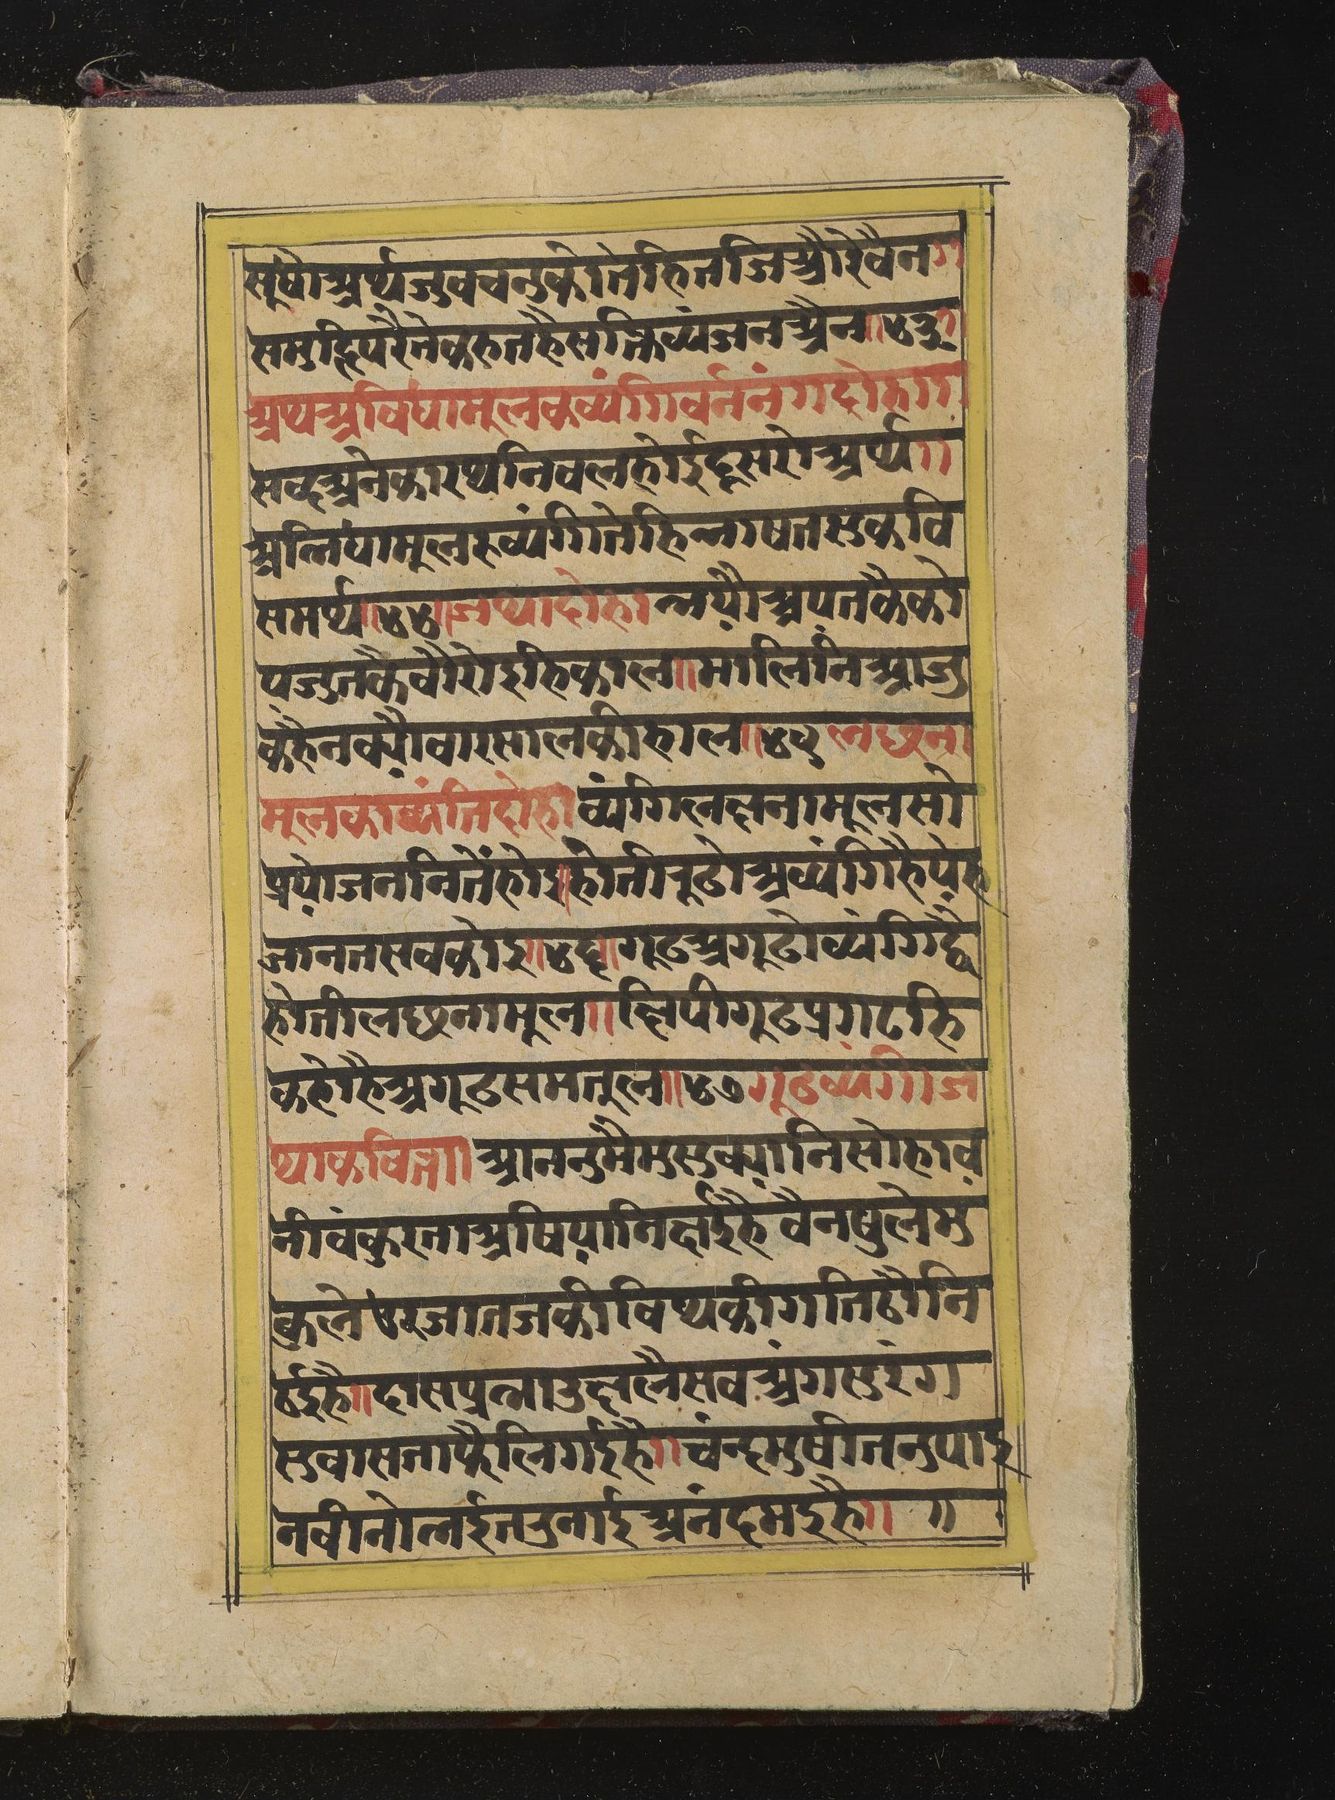 सूधौअर्थजुवचनुकोतेहितजिऔरेवैन॥
समुझिपरैतेकहतहैसक्तिव्यंजनऔन॥४३॥
अथअविधामूलकव्यंगिवर्ननं॥दोहा॥
सव्दअनेकारथनिवलहोईदूसरोअर्थ॥
अभिधामूलहव्यंगितेहिभाषतसुकवि
समर्थ॥४४॥जथादोहाभयौअपतकैको
पजुतकैवौरोइहिकाल॥मालिनिआजु
कहैनक्यौवारसालकौहाल॥४५लछना
मूलकाव्यंगिदोहाव्यंगिलक्षनामूलसो
प्रयोजननितेंहोइ॥होतीरूढोअव्यंगिहैयेह
जानतसवकोइ॥४६॥गूढअगूढोव्यंगिद्वै
होतीलछनामूल॥छिपीगूढप्रगटहि
कहेहैअगूढसमतूल॥४७गूढव्यंगिज
थाकवित्त॥आननुमैमुसुक्यानिसोहाव
नीवंकुरताअषियानिछईहै वैनषुलेमु
कुले उरजातजकीविथकीगतिठौनि
ठईहै॥दासप्रभाउछलैसवअंगसुरंग
सुवासताफैलिगईहै॥चंन्दमुषीतनुपाइ
नवीनोभईतरुनाईअनंदमईहै॥ ॥